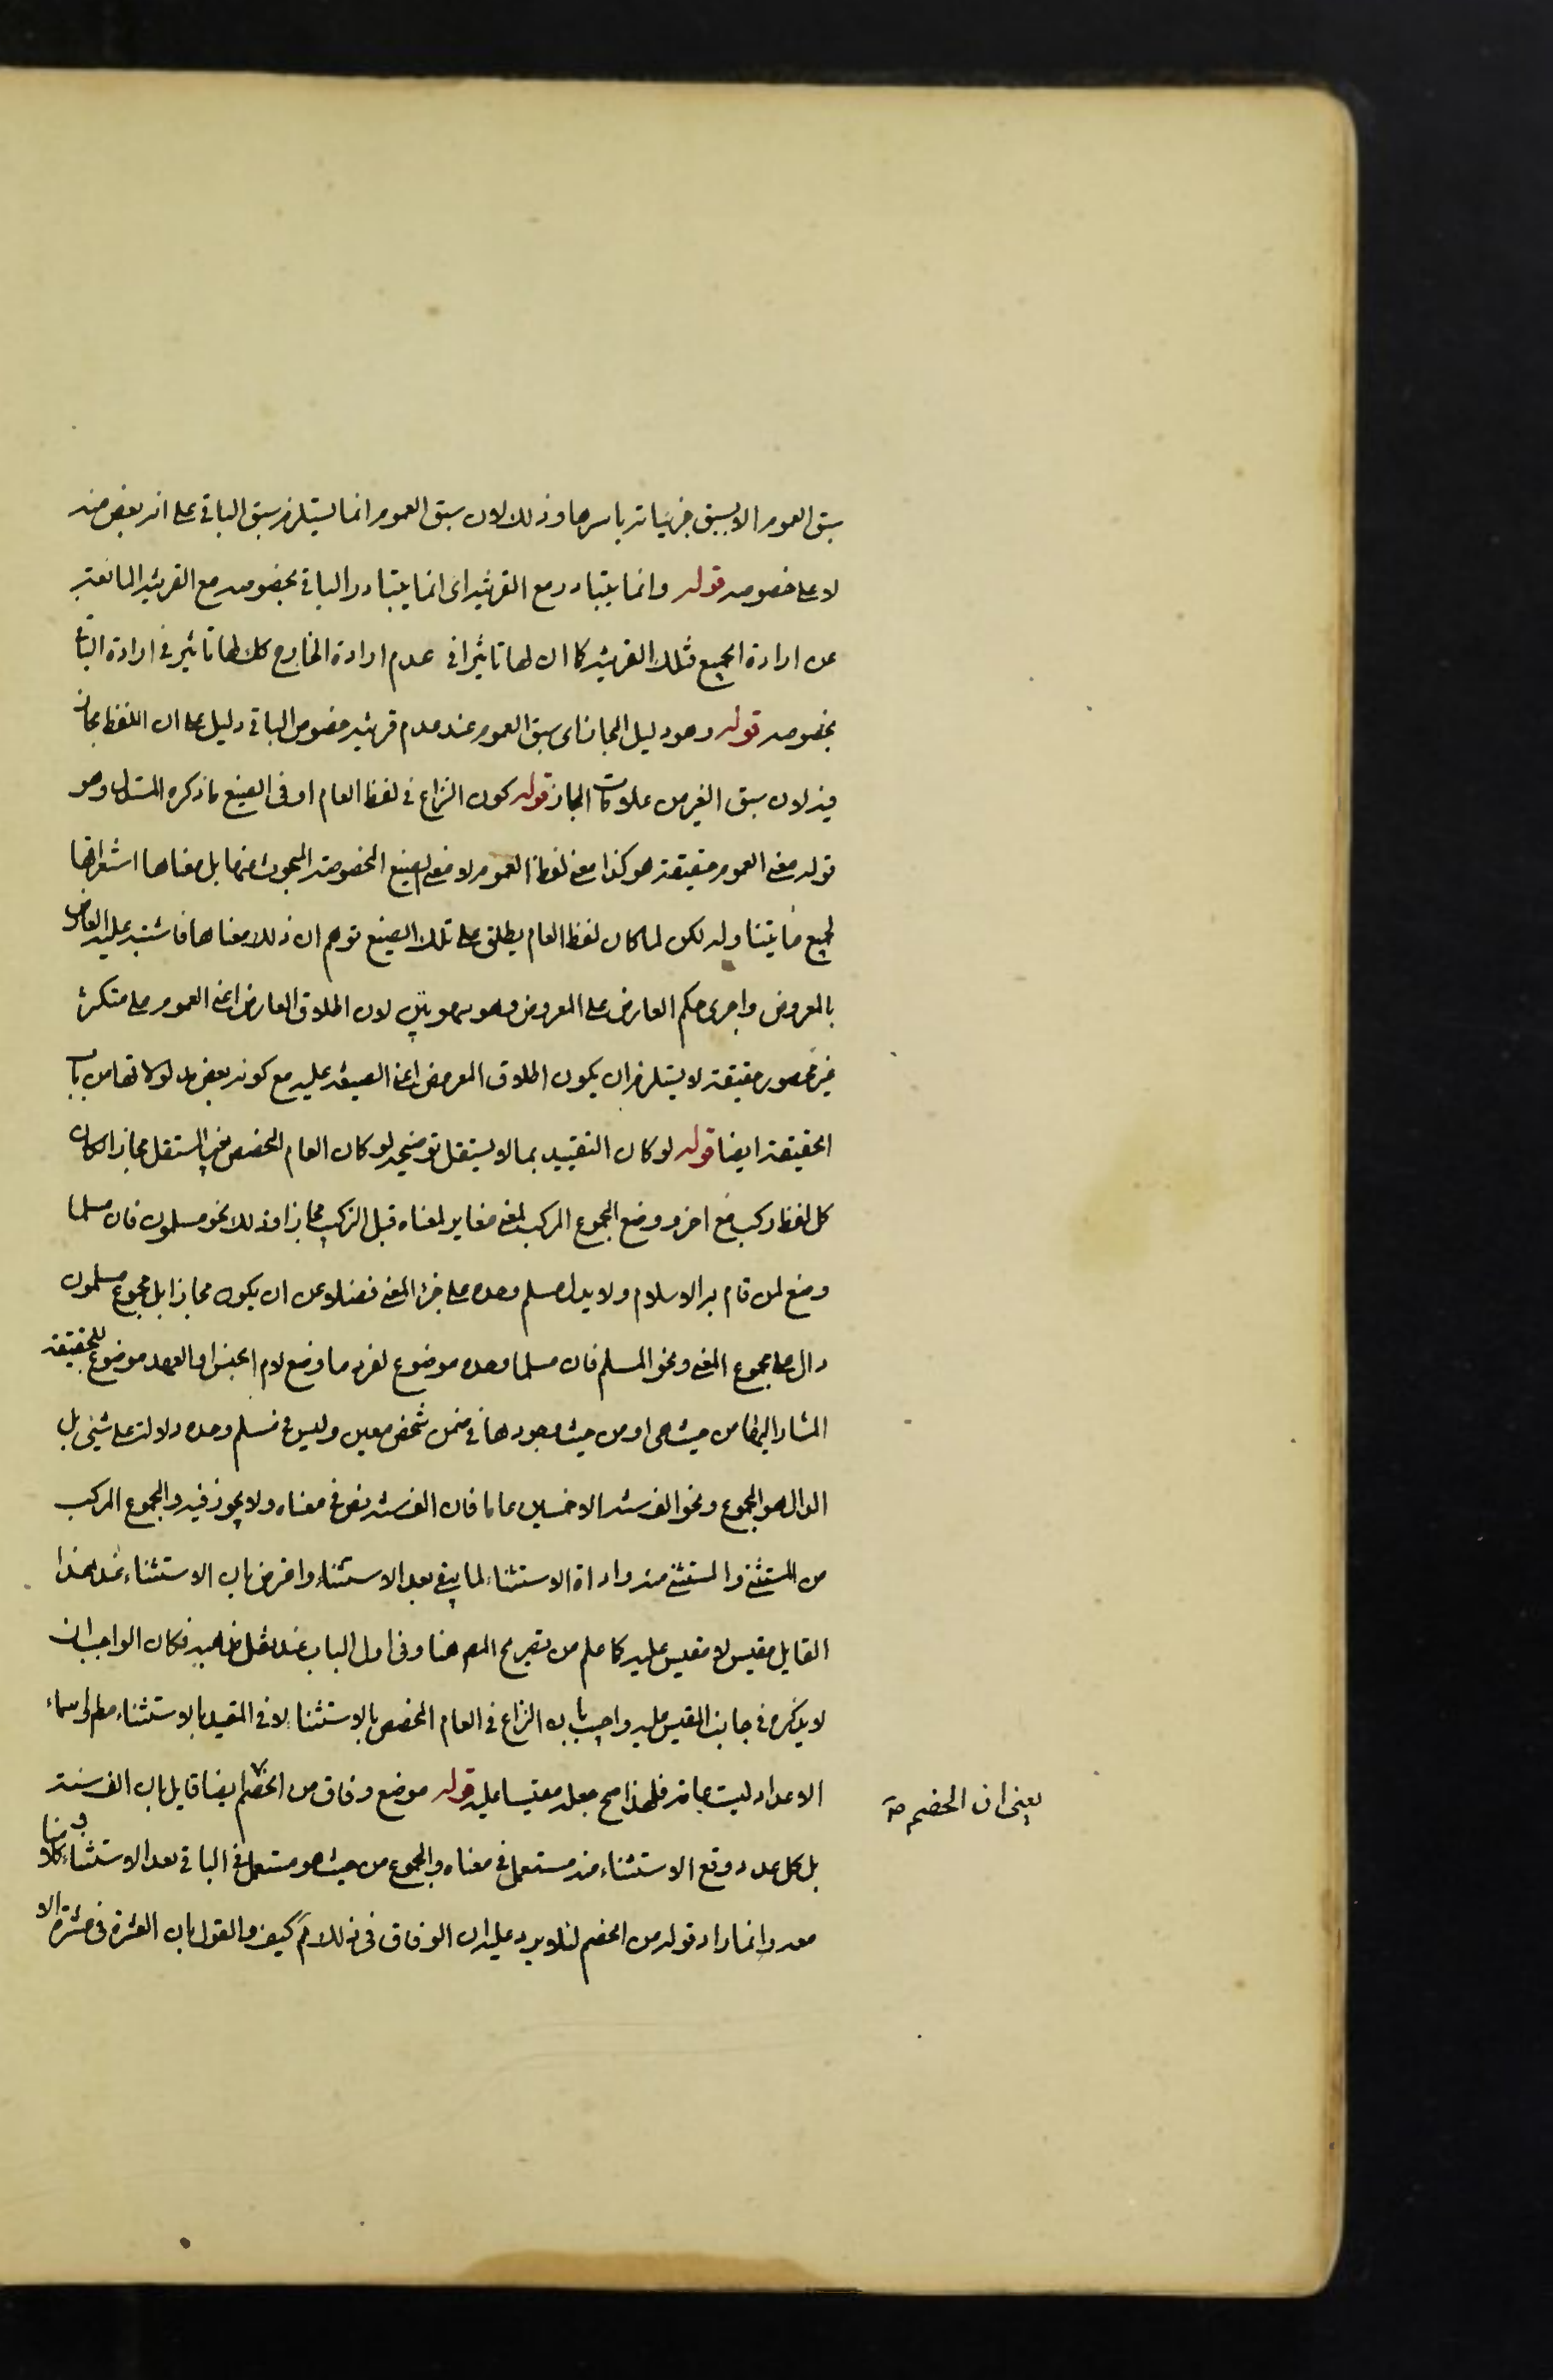 سبق العموم الا بسبق جزئياته باسرها وذلك لان سبق العموم انما يستلزم سبق الباقى على انه بعض منه
لا على خصوصه قوله وانما يتبادر مع القرينة اى انما يتبادر الباقى بخصوصه مع القرينة المانعة
عن ارادة الجميع فتلك القرينة كما ان لها تاثيرا فى عدم ارادة الخارج كك لها تاثير فى ارادة الباقى
بخصوصه قوله وهو دليل المجاز اى سبق العموم عند عدم قرينة خصوص الباقى دليل على ان اللفظ مجاز
فيه لان سبق الغير من علامات المجاز قوله كون النزاع فى لفظ العام او فى الصيغ ما ذكره المستدل وهو
قوله معنى العموم حقيقة هو كذا معنى لفظ العموم لا معنى الصيغ المخصوصة المبحوث عنها بل معناها استغراقها
لجميع ما يتناوله لكن لما كان لفظ العام يطلق على تلك الصيغ توهم ان ذلك معناها فاشتبه عليه العارض
بالمعروض واجرى حكم العارض على المعروض وهو سهو بين لان اطلاق العارض اعنى العموم على متكثر
غير محصور حقيقة لا يستلزم ان يكون اطلاق المعروض اعنى الصيغة عليه مع كونه بعض مدلولاتها من باب
الحقيقة ايضا قوله لو كان التقييد بما لا يستقل توضيحه لو كان العام المخصص بغير المستقل مجازا لكان
كل لفظ ركب مع اخر ووضع المجموع المركب لمعنى مغاير لمعناه قبل التركيب مجازا وذلك نحو مسلمون فان مسلما
وضع لمن قام به الاسلام ولا يدل مسلم وحده على جزء المعنى فضلا عن ان يكون مجازا بل مجموع مسلمون
دال على مجموع المعنى ونحو المسلم فان مسلما وحده موضوع لفرد ما وضع لام الجنس او العهد موضوع للحقيقة
المشار اليها من حيث هى او من حيث وجودها فى ضمن شخص معين وليس فى مسلم وحده دلالة على شىء بل
الدال هو المجموع ونحو الف سنة الا خمسين عاما فان الف سنة نص فى معناه ولا تجوز فيه والمجموع المركب
من المستثنى والمستثنى منه واداة الاستثناء لما يبقى بعد الاستثناء واعترض بان الاستثناء عند هذا
القايل مقيس لا مقيس عليه كما علم من تصريح المص هنا وفى اول الباب عند نقل مذهبه فكان الواجب ان
لا يذكره فى جانب المقيس عليه واجيب بان النزاع فى العام المخصص بالاستثناء لا فى المقيد بالاستثناء مطلقا واسماء
الاعداد ليست عامة فلهذا صح جعله مقيسا عليه قوله موضع وفاق من الخصم ايضا قايل بان الف سنة
بل كل عدد وقع الاستثناء منه مستعمل فى معناه والمجموع من حيث هو مستعمل فى الباقى بعد الاستثناء
وانما زاد قوله من الخصم لئلا يرد عليه ان الوفاق فى ذلك مم كيف والقول بان العشرة فى عشرة الا
يعنى ان الخصم صح